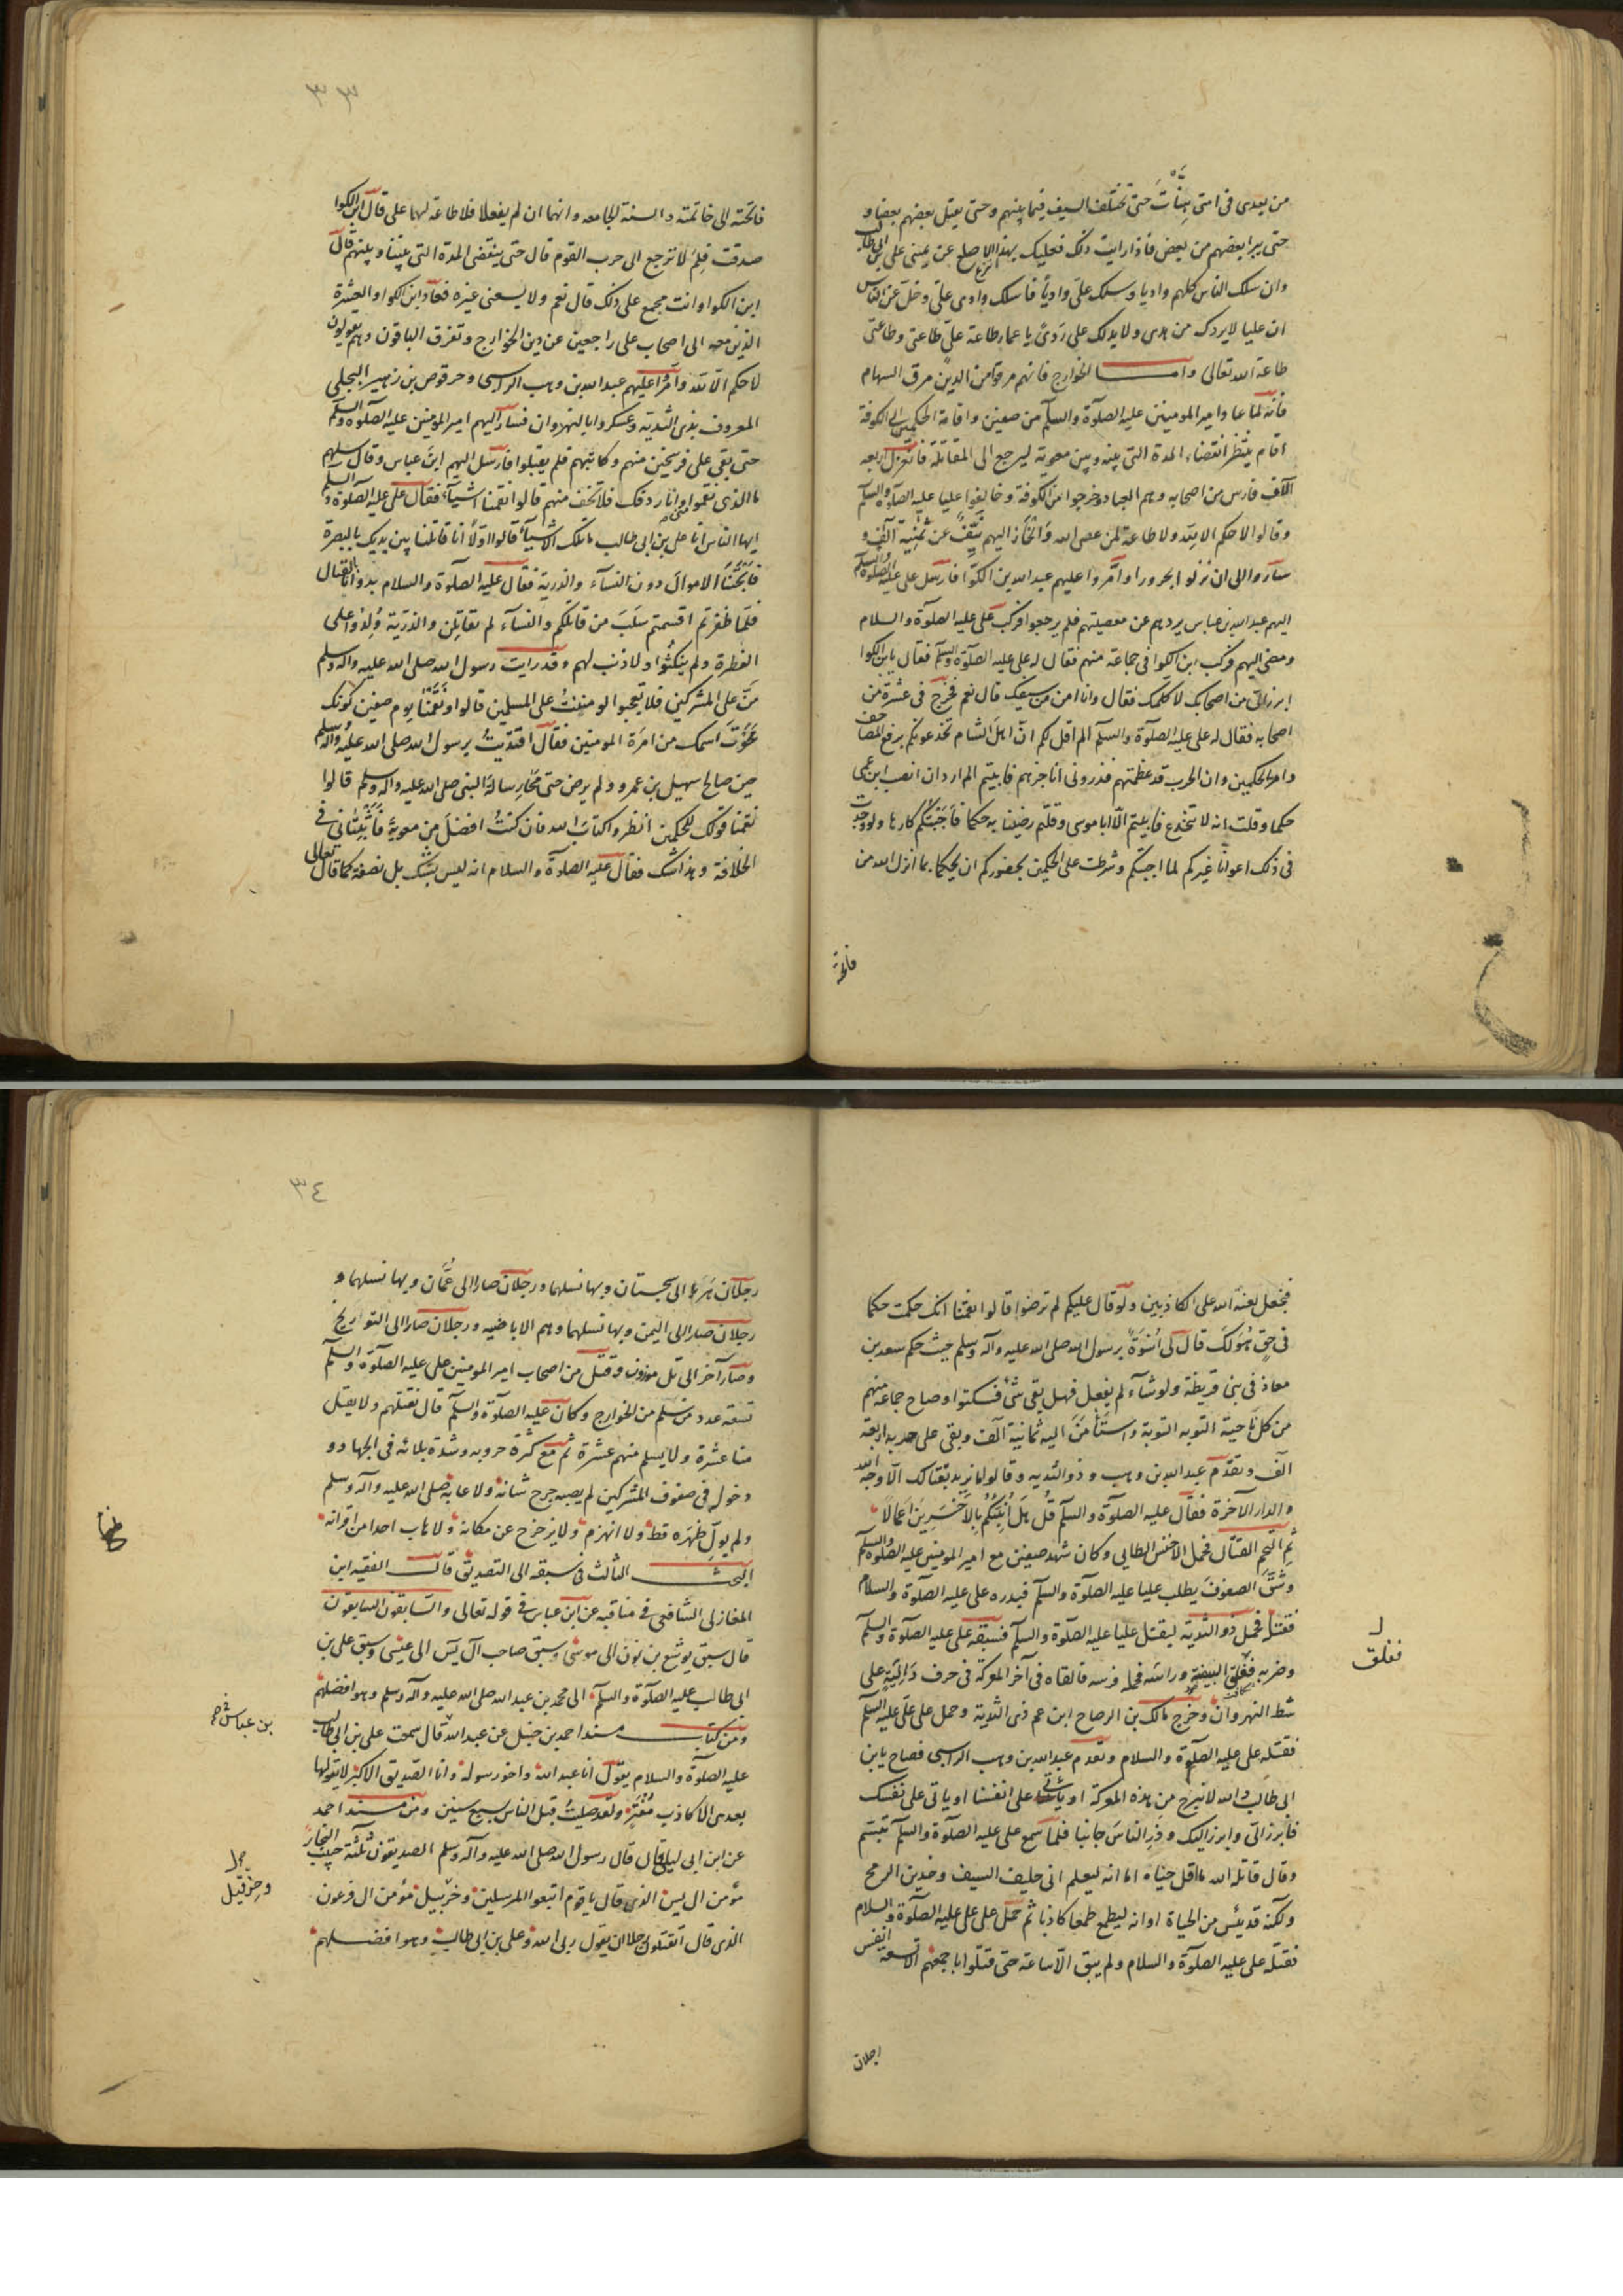 من بعدى فى امتى هنات حتى تختلف السيف فيما بينهم وحتى يقتل بعضهم بعضا و
حتى يبرا بعضهم من بعض فاذا رايت ذلك فعليك بهذا الاصلع عن يمينى على ابن ابى طالب
وان سلك الناس كلهم واديا وسلك على واديا فاسلك وادى على وخل عن الناس
ان عليا لا يردك من هدى ولا يدلك على ردى يا عمار طاعة على طاعتى وطاعتى
طاعة الله تعالى واما الخوارج فانهم مرقوا من الدين مرق السهام
فانه لما عاد امير المومنين عليه الصلوة والسلم من صفين واقامة الحكمين الى الكوفة
اقام ينتظر انقضاء المدة التى بينه وبين معوية ليرجع الى المقاتلة فانعزل اربعه
آلاف فارس من اصحابه وهم العباد وخرجوا من الكوفة وخالفوا عليا عليه الصلوة والسلم
وقالوا لا حكم الا لله ولا طاعة لمن عصى الله وانحاز اليهم نيف عن ثمنية آلف و
ساروا الى ان نزلوا بحرورا وامروا عليهم عبد الله بن الكوا فارسل على عليه الصلوة والسلم
اليهم عبد الله بن عباس يردهم عن معصيتهم فلم يرجعوا فركب على عليه الصلوة والسلام
ومضى اليهم فركب ابن الكوا فى جماعة منهم فقال له على عليه الصلوة والسلم فقال يا ابن الكوا
ابرز الى من اصحابك لاكلمك فقال وانا امن من سيفك قال نعم فخرج فى عشرة من
اصحابه فقال له على عليه الصلوة والسلم الم اقل لكم ان اهل الشام تخدعونكم برفع المصاحف
وامر الحكمين وان الحرب قد عظمتهم فذرونى اناجزهم فابيتم الم ارد ان انصب ابن عمى
حكما وقلت انه لا ينخدع فابيتم الا ابا موسى وقلتم رضينا به حكما فاجبتكم كارها ولو وجدت
فى ذلك اعوانا غيركم لما اجبتكم وشرطت على الحكمين بحضوركم ان يحكما بما انزل الله من
فاتحة
٣٣
فاتحته الى خاتمته والسنة الجامعه وانهما ان لم يفعلا فلا طاعة لهما على قال ابن الكوا
صدقت فلم لا ترجع الى حرب القوم قال حتى ينقضى المدة التى بيننا وبينهم قال
ابن الكوا وانت مجمع على ذلك قال نعم ولا يسعنى غيره فعاد ابن الكوا والعشرة
الذين معه الى اصحاب على راجعين عن دين الخوارج وتفرق الباقون وهم يقولون
لا حكم الا لله وامروا عليهم عبد الله بن وهب الراسى وحرقوص بن زهير البجلى
المعروف بذى الثدية وعسكروا بالنهروان فسار اليهم امير المومنين عليه الصلوة والسلم
حتى بقى على فرسخين منهم وكاتبهم فلم يقبلوا فارسل اليهم ابن عباس وقال سلهم
ما الذى نقموا وانا ردفك فلا تخف منهم قالوا نقمنا اشياء فقال على عليه الصلوة والسلم
ايها الناس انا على بن ابى طالب ما تلك الاشياء قالوا اولا انا قاتلنا بين يديك بالبصرة
فابحتنا الاموال دون النساء والذرية فقال عليه الصلوة والسلام بدوانا بالقتال
فلما ظفرتم اقسمتم سلب من قاتلكم والنساء لم تقاتلن والذرية ولدوا على
الفطرة ولم ينكثوا ولا ذنب لهم وقد رايت رسول الله صلى الله عليه واله وسلم
من على المشركين فلا تعجبوا لو مننت على المسلمين قالوا ونقمنا يوم صفين كونك
محوت اسمك من امرة المومنين فقال اقتديت برسول الله صلى الله عليه واله وسلم
حين صالح سهيل بن عمرو ولم يرض حتى محا رسالة النبى صلى الله عليه واله وسلم قالوا
نقمنا قولك للحكمين انظروا كتاب الله فان كنت افضل من معوية فاثبتانى فى
الخلافة وهذا شك فقال عليه الصلوة والسلام انه ليس بشك بل نصفة كما قال تعالى
فنجعل لعنة الله على الكاذبين ولو قال عليكم لم ترضوا قالوا نقمنا انك حكمت حكما
فى حق هو لك قال لى اسوة برسول الله صلى الله عليه وآله وسلم حيث حكم سعد بن
معاذ فى بنى قريظة ولو شاء لم يفعل فهل بقى شئ فسكتوا وصاح جماعة منهم
من كل ناحية التوبه التوبة واستامن اليه ثمانية آلف وبقى على حربه اربعة
آلف وتقدم عبد الله بن وهب وذو الثديه وقالوا ما نريد بقتالك الا وجه الله
والدار الآخرة فقال عليه الصلوة والسلم قل هل انبئكم بالاخسرين اعمالا
ثم التحم القتال فحمل الاخنس الطايى وكان شهد صفين مع امير المومنين عليه الصلوة والسلم
وشق الصفوف يطلب عليا عليه الصلوة والسلم فبدره على عليه الصلوة والسلام
فقتله فحمل ذو الثدية ليقتل عليا عليه الصلوة والسلم فسبقه على عليه الصلوة والسلم
وضربه ففلق البيضة وراسه فحمله فرسه فالقاه فى آخر المعركة فى حرف دالية على
شط النهروان وخرج مالك بن الوضاح ابن عم ذى الثدية وحمل على على عليه السلم
فقتله على عليه الصلوة والسلام وتقدم عبد الله بن وهب الراسى فصاح يا بن
ابى طالب والله لا نبرح من هذه المعركة او ياتى على انفسنا او ياتى على نفسك
فابرز الى وابرز اليك وذر الناس جانبا فلما سمع على عليه الصلوة والسلم تبسم
وقال قاتله الله ما اقل حياه اما انه ليعلم انى حليف السيف وخدين الرمح
ولكنه قد يئس من الحياة او انه ليطمع طمعا كاذبا ثم حمل على على عليه الصلوة والسلام
فقتله على عليه الصلوة والسلام ولم يبق الا ساعة حتى قتلوا باجمعهم الا تسعة انفس
ففلق
رجلان
٣٤
رجلان هربا الى سجستان وبها نسلهما ورجلان صارا الى عمان وبها نسلهما و
رجلان صارا الى اليمن وبها نسلهما وهم الاباضيه ورجلان صارا الى التواريخ
وصار آخر الى تل موزون وقتل من اصحاب امير المومنين على عليه الصلوة والسلم
تسعة عدد من سلم من الخوارج وكان عليه الصلوة والسلم قال نقتلهم ولا يقتل
منا عشرة ولا يسلم منهم عشرة ثم مع كثرة حروبه وشدة بلائه فى الجهاد و
دخوله فى صفوف المشركين لم يصبه جرح شانه ولا عابه صلى الله عليه وآله وسلم
ولم يول ظهره قط ولا انهزم ولا يزحزح عن مكانه ولا هاب احدا من اقرانه
البحث الثالث فى سبقه الى التصديق قال الفقيه ابن
المغازلى الشافعى فى مناقبه عن ابن عباس فى قوله تعالى والسابقون السابقون
قال سبق يوشع بن نون الى موسى وسبق صاحب آل يس الى عيسى وسبق على بن
ابى طالب عليه الصلوة والسلم الى محمد بن عبد الله صلى الله عليه وآله وسلم وهو افضلهم
ومن كتاب مسند احمد بن حنبل عن عبد الله قال سمعت على بن ابى طالب
بن عباس
عليه الصلوة والسلام يقول انا عبد الله واخو رسوله وانا الصديق الاكبر لا يقولها
بعدى الا كاذب مفتر ولقد صليت قبل الناس سبع سنين ومن مسند احمد
عن ابن ابى ليلى قال قال رسول الله صلى الله عليه وآله وسلم الصديقون ثلثة حبيب النجار
مؤمن ال يس الذى قال يا قوم اتبعوا المرسلين وخربيل مؤمن ال فرعون
وحزقيل
الذى قال اتقتلون رجلا ان يقول ربى الله وعلى بن ابى طالب وهو افضلهم